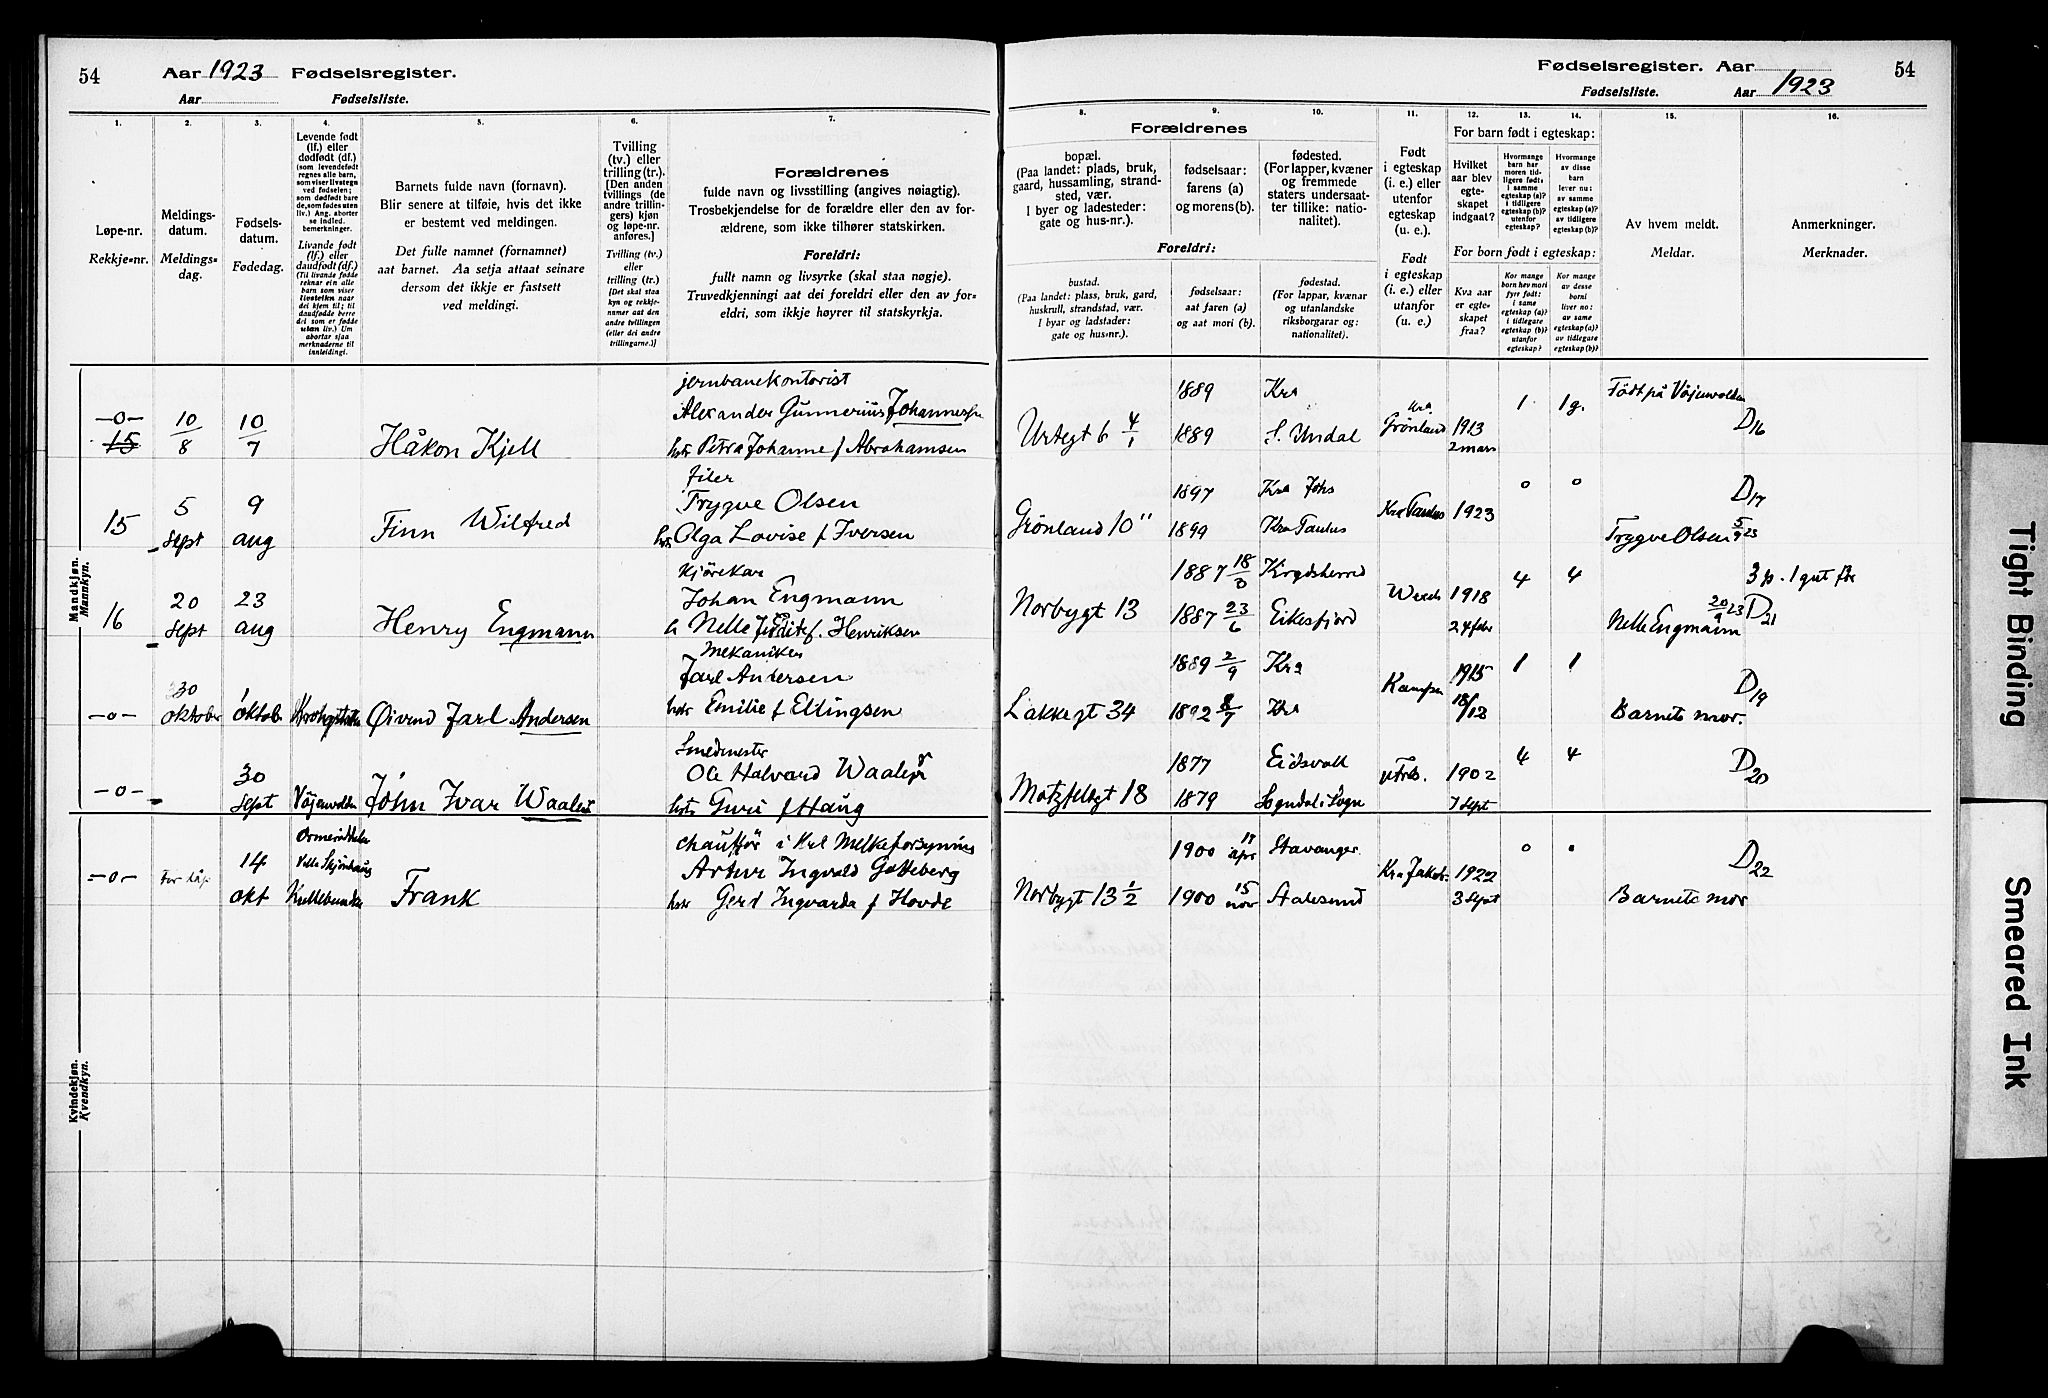 54
Aar 1923 Fødselsregister.
Aar
Fødselsliste.
Fødselsregister. Aar
54
Fødselsliste.
Aar 1923
1.
2.
3.
4.
5.
6.
7.
8.
9.
10.
11.
12.
13.
14.
15.
16.
Løpe-nr.
Rekkje-nr.
Meldings-
datum.
Meldings-
dag.
Fødsels-
datum.
Fødedag.
Levende født
(lf.) eller
dødfødt (df.)
(som levendefødt
regnes alle barn,
som viser livstegn
ved fødselen;
som dødfødt bare
de, som fødes uten
liv.) Ang. aborter
se indled.
bemerkninger.
Livande født
(lf.) eller
daudfødt (df.)
(Til livande fødde
reknar ein alle
barn som viser
livsteikn naar
dei kjem til; til
daudfødde berre
dei som er fødde
utan liv.) Um
abortar sjaa
merknaderne til
innleidingi.
Barnets fulde navn (fornavn).
Blir senere at tilføie, hvis det ikke
er bestemt ved meldingen.
Det fulle namnet (fornamnet)
aat barnet. Aa setja attaat seinare
dersom det ikkje er fastsett
ved meldingi.
Tvilling
(tv.) eller
trilling (tr.).
[Den anden
tvillings (de
andre trillin-
gers) kjøn
og løpe-nr.
anføres.]
Tvilling (tv.)
eller
trilling (tr.)
[Det skal staa
kyn og rekkje-
numer aat den
andre tvillingen
(eller dei andre
trillingarne.)]
Forældrenes
fulde navn og livsstilling (angives nøiagtig).
Trosbekjendelse for de forældre eller den av for-
ældrene, som ikke tilhører statskirken.
Foreldri:
fullt namn og livsyrke (skal staa nøgje).
Truvedkjenningi aat dei foreldri eller den av for-
eldri, som ikkje høyrer til statskyrkja.
Forældrenes
bopæl.
(Paa landet: plads, bruk,
gaard, hussamling, strand-
sted, vær.
I byer og ladesteder:
gate og hus-nr.).
fødselsaar:
farens (a)
og morens (b).
fødested.
(For lapper, kvæner
og fremmede
staters undersaat-
ter tillike: natio-
nalitet).
Foreldri:
bustad.
(Paa landet: plass, bruk, gard,
huskrull, strandstad, vær.
I byar og ladstader:
gate og hus-nr.).
fødselsaar:
aat faren (a)
og aat mori (b).
fødestad.
(For lappar, kvænar
og utanlandske
riksborgarar og:
nationalitet).
Født
i egteskap
(i. e.) eller
utenfor
egteskap
(u. e.).
Født
i egteskap
(i. e.) eller
utanfor
(u. e.)
For barn født i egteskap:
Hvilket
aar blev
egte-
skapet
indgaat?
Hvormange
barn har
moren tid-
ligere født:
i samme
egteskap (a)?
i tidligere
egteskap (b)?
utenfor
egteskap?
Hvormange
av disse
barn
lever nu:
av samme
egteskap (a)?
av tidligere
egteskap (b)?
For born født i egteskap:
Kva aar
er egte-
skapet
fraa?
Kor mange
born hev mori
fyrr født:
i same
egteskap (a)?
i tidlegare
egteskap (b)?
utanfor
egteskap?
Kor mange
av desse
borni
liver no:
av same
egteskap (a)?
av tidlegare
egteskap (b)?
Av hvem meldt.
Meldar.
Anmerkninger.
Merknader.
Mandkjøn.
Mannkyn.
—o—
15
10/8
10/7
Håkon Kjell
jernbanekontorist
Alexander Gunnerius Johannesen
hstr Petra Johanne f Abrahamsen
Urtegt 6 4/1
1889 Kra
1889 S. Undal
Kra Grönland
1913
2 mars
1
1 g.
Født på Vöjenvolden
D16
15
5 sept
9 aug
Finn Wilfred
filer
Trygve Olsen
hstr Olga Lovise f Iversen
Grönland 10"
1897 Kra Johs
1899 Kra Paulus
Kra Paulus
1923
o
o
D17
Trygve Olsen 5/9 23
16
20 sept
23 aug
Henry Engmann
Kjörekar
Johan Engmann
h Nelle f. Henriksen
Norbygt 13
1887 18/8
1887 23/6 Eikesfjord
1918
24 febr
4
4
Nelle Engmann 20/9 23
D21
—o—
30 oktober
1 oktob
Øivind Jarl Andersen
Mekaniker
Jarl Andersen
hstr Emilie f Ellingsen
Lakkegt 34
1889 2/9 Kra
1892 8/7 Kra
Kampen
1915
18/12
1
1
D19
Barnets mor.
—o—
30 sept
Vöjenvolden
John Ivar Waaler
Smedmester
Ole Halvard Waaler
hstr Guri f Haug
Motzfeldtgt 18
1877 Eidsvoll
1879 Sogndal i Sogn
1902
7 sept
4
4
D20
—o—
14 okt
Frank
chauffør i Kra Melkeforsyning
Artur Ingvald Gotteberg
hstr Gerd Ingvarda f Hovde
Norbygt 13 1/2
1900 apr Stavanger
1900 15 nov Aalesund
Kra Jakob.
1922
3 sept
o
o
D22
Barnets mor
Kvindekjøn.
Kvendkyn.
Tight Binding
Smeared Ink